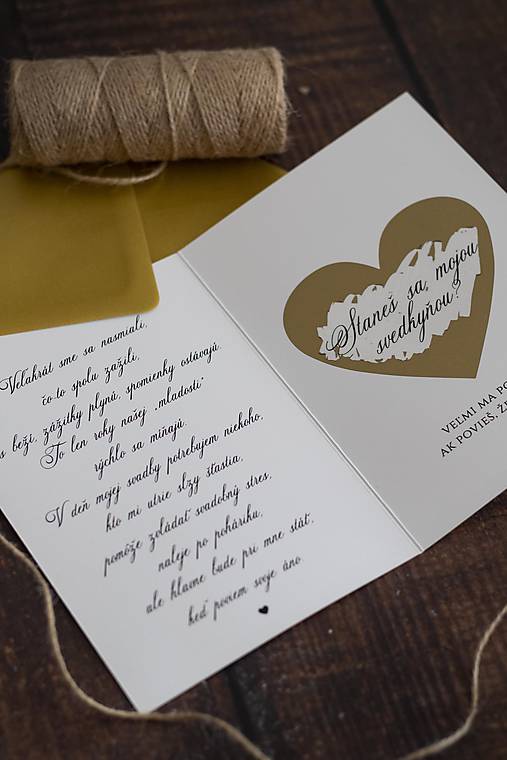 Veľakrát sme sa nasmiali,
čo-to spolu zažili,
beží, zážitky plynú, spomienky ostávajú.
To len roky našej „mladosti“
rýchlo sa míňajú.
V deň mojej svadby potrebujem niekoho,
kto mi utrie slzy šťastia,
pomôže zvládať svadobný stres,
naleje po poháriku,
ale hlavne bude pri mne stáť,
keď poviem svoje áno.
Staneš sa mojou
svedkyňou?
VEĽMI MA
AK POVIEŠ,